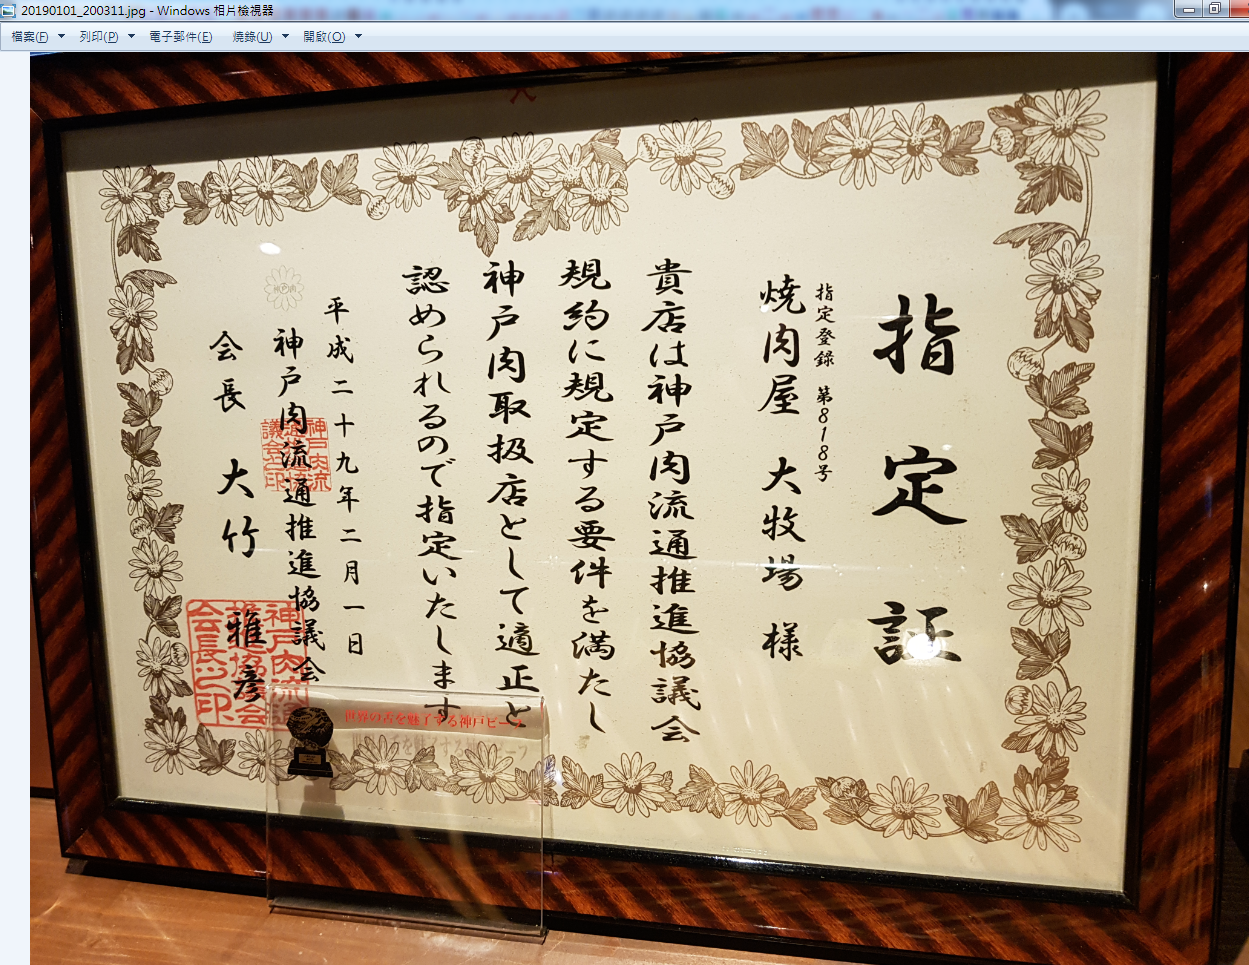 20190101_200311.jpg - Windows 相片檢視器
檔案(F) 列印(P) 電子郵件(E) 燒錄(U) 開啟(O)
指定証
指定登録 第818号
焼肉屋 大牧場 様
貴店は神戸肉流通推進協議会
規約に規定する要件を満たし
神戸肉取扱店として適正と
認められるので指定いたします
平成二十九年二月一日
神戸肉
神戸肉流通推進協議会
会長 大竹 雅彦
神戸肉流通推進協議会之印
神戸肉流通推進協議会会長之印
世界の舌を魅了する神戸ビーフ